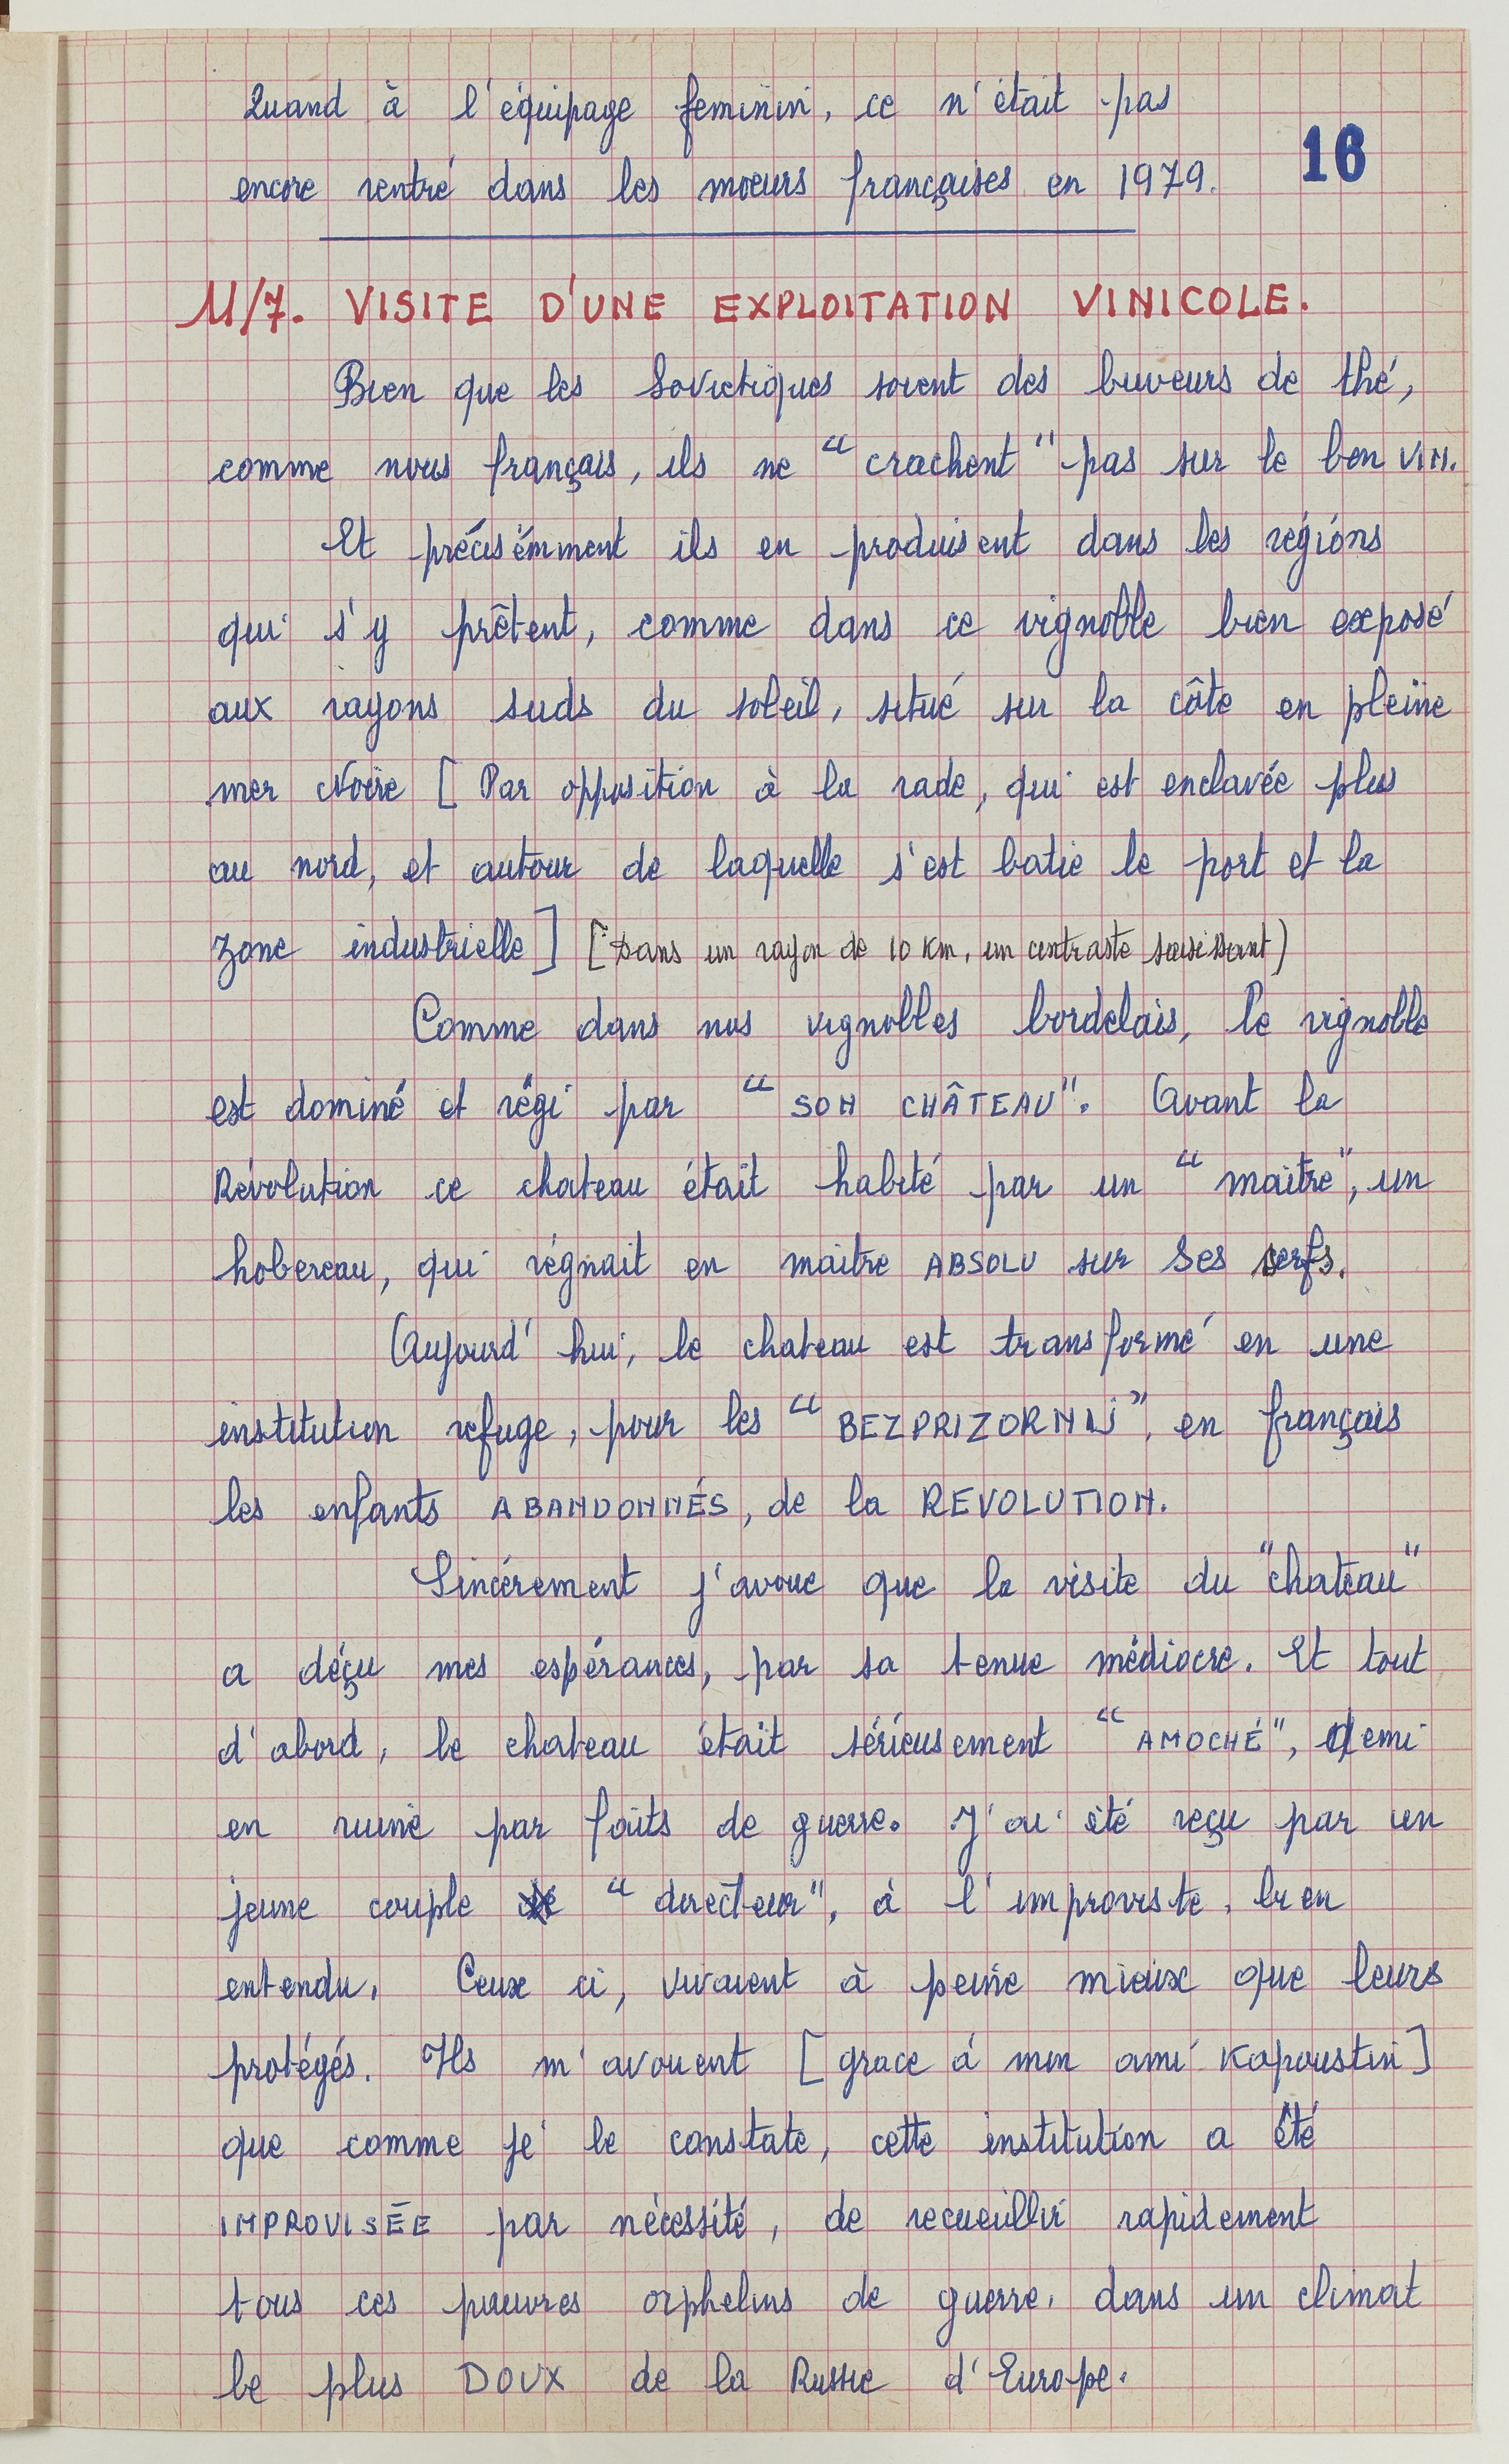 Quand à l'équipage feminin, ce n'était pas
16
encore rentré dans les moeurs françaises en 1979.
11/7. VISITE D'UNE EXPLOITATION VINICOLE.
Bien que les Soviétiques soient des buveurs de thé,
comme nous français, ils ne "crachent" pas sur le bon VIN.
Et précisémment ils en produisent dans les régions
qui s'y prêtent, comme dans ce vignoble bien exposé
aux rayons suds du soleil, situé sur la côte en pleine
mer Noire [ Par opposition à la rade, qui est enclavée plus
au nord, et autour de laquelle s'est batie le port et la
zone industrielle] [Dans un rayon de 10 Km, un contraste saisissant)
Comme dans nos vignobles bordelais, le vignoble
est dominé et régi par "SON CHÂTEAU". Avant la
Révolution ce chateau était habité par un "maitre", un
hobereau, qui régnait en maitre ABSOLU sur ses serfs.
Aujourd'hui, le chateau est transformé en une
institution refuge, pour les "BEZPRIZORNIJ", en français
les enfants ABANDONNÉS, de la REVOLUTION.
Sincérement j'avoue que la visite du "chateau"
a déçu mes espérances, par sa tenue médiocre. Et tout
d'abord, le chateau était sérieusement "AMOCHÉ", demi
en ruine par faits de guerre. J'ai été reçu par un
jeune couple "directeur", à l'improviste, bien
entendu. Ceux ci, vivaient à peine mieux que leurs
protégés. Ils m'avouent [grace à mon ami Kapoustin]
que comme je le constate, cette institution a été
IMPROVISÉE par nécessité, de recueillir rapidement
tous ces pauvres orphelins de guerre, dans un climat
le plus DOUX de la Russie d'Europe.